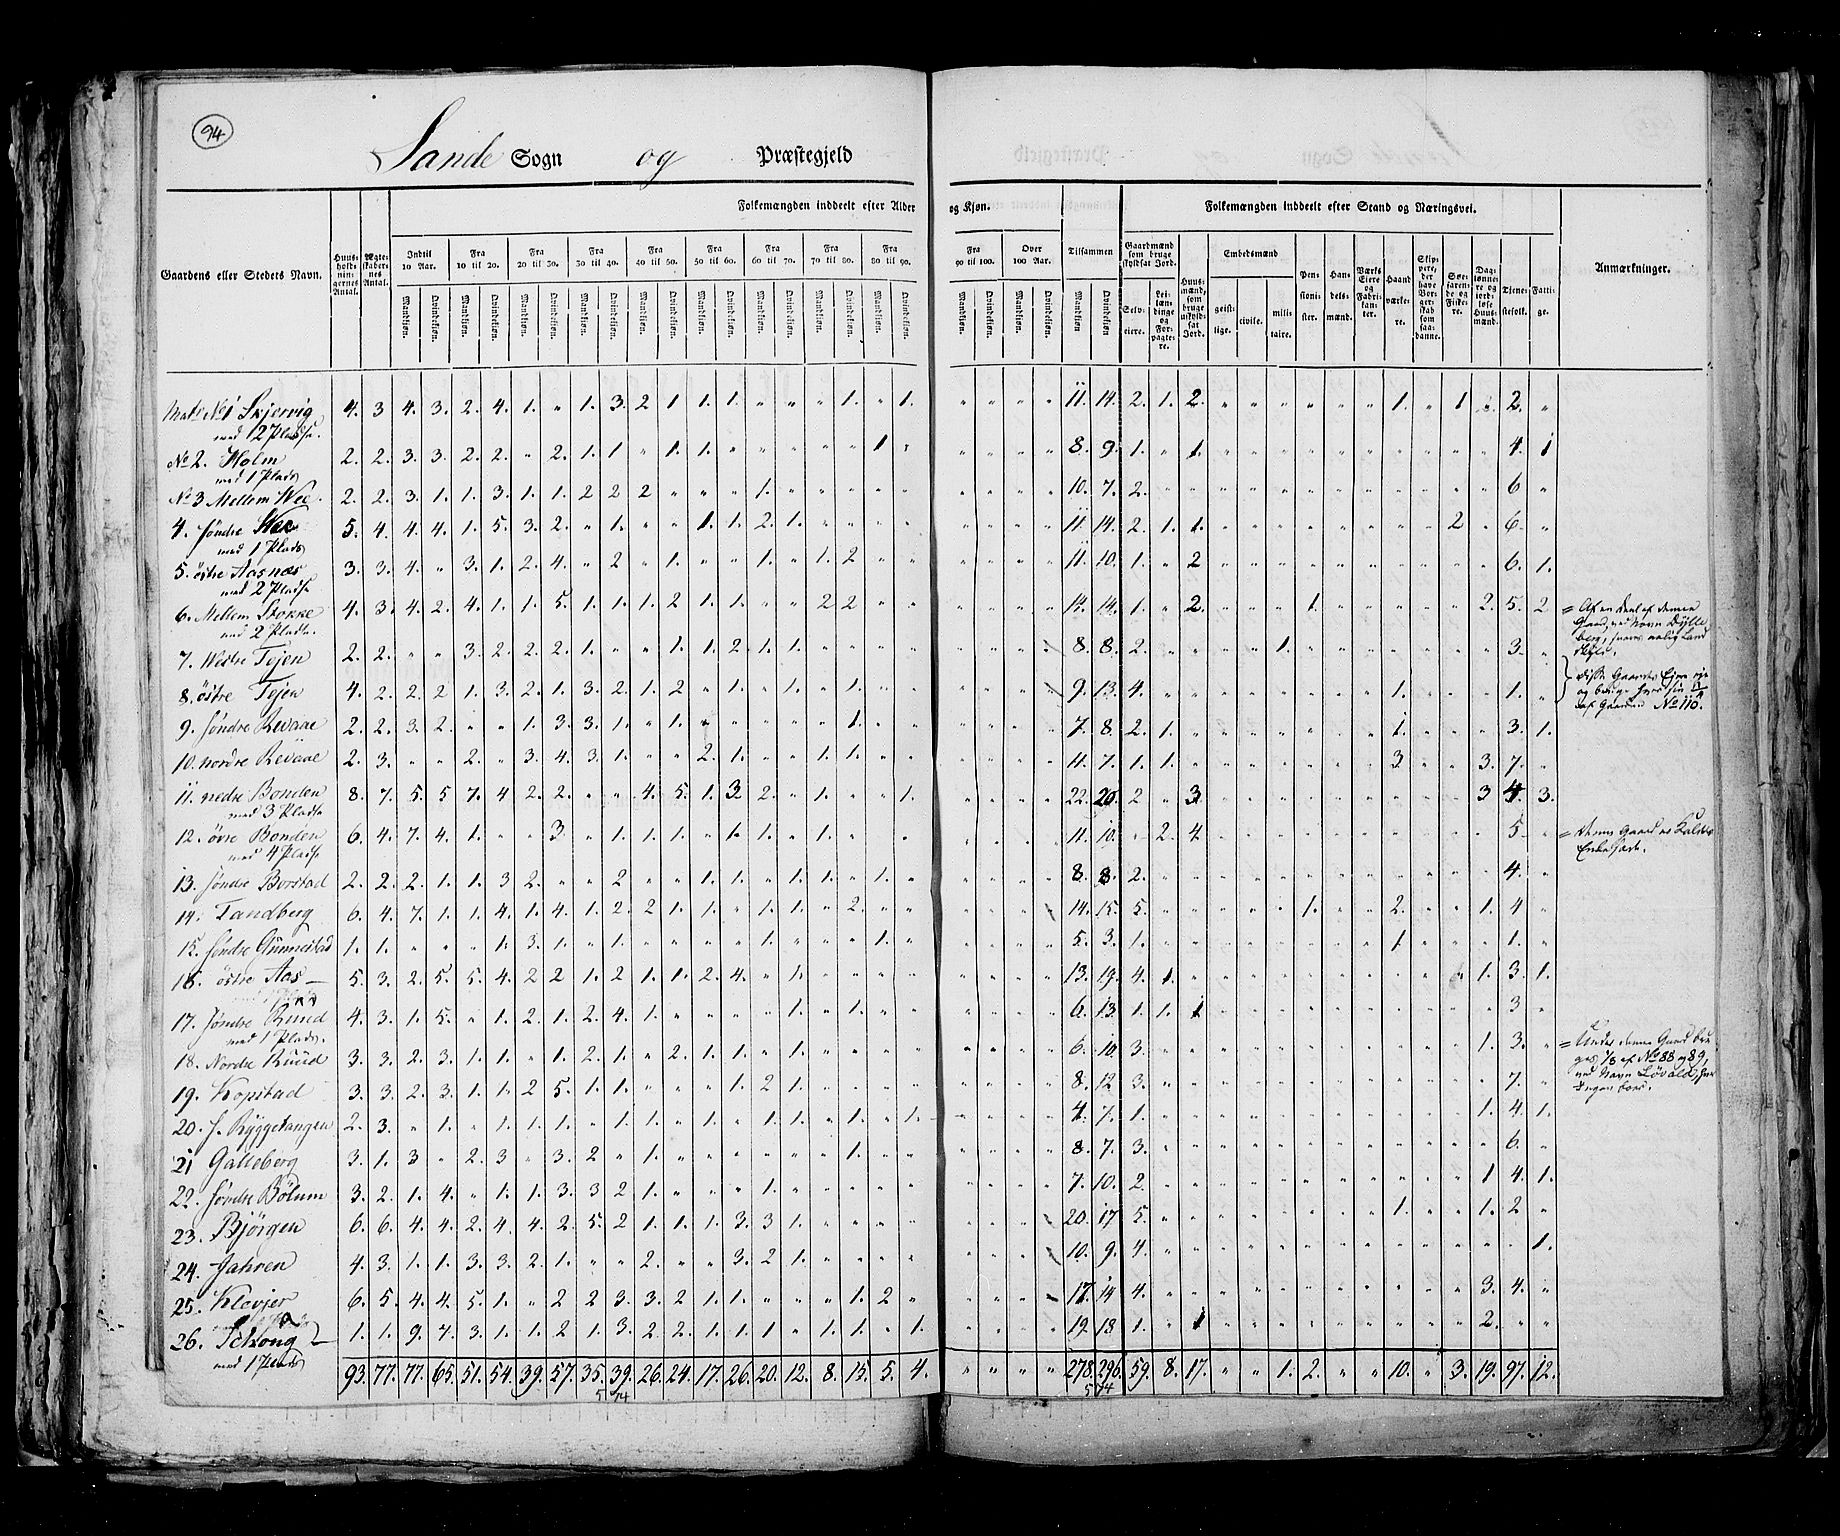 94
Sande Sogn og Præstegjeld
Gaardens eller Stedets Navn.
Huus-holdnin-gernes Antal.
Ægte-skaber-nes Antal.
Folkemængden inddeelt efter Alder og Kjøn.
Indtil 10 Aar. Fra 10 til 20. Fra 20 til 30. Fra 30 til 40. Fra 40 til 50. Fra 50 til 60. Fra 60 til 70. Fra 70 til 80. Fra 80 til 90. Fra 90 til 100. Over 100 Aar. Tilsammen
Mandkjøn. Qvindekjøn.
Folkemængden inddeelt efter Stand og Næringsvei.
Gaardmænd som bruge skyldsat Jord.
Selv-eiere.
Lei-lændinge og For-pagte-re.
Huus-mænd, som bruge uskyld-sat Jord.
Embedsmænd
geist-lige. civile. mili-taire.
Pen-sioni-ster.
Han-dels-mænd.
Værks Eiere og Fabri-kan-ter.
Haand-værke-re.
Søe-farende og Fiske-re.
Dag-lønne-re og jord-løse Huus-mænd.
Tjene-stefolk.
Fatti-ge.
Anmærkninger.
Matr No 1 Skjervig 4. 3 4. 3. 2. 4. 1. " 1. 3. 2 1. 1. 1. " " " 1. " 1. 11. 14. 2. 1. 2. 1. " 1 " 2. "
med 2 Pladse.
No 2. Holm 2. 2. 3. 3. 2. 2. " 2. 1. 1 " 1. 1. " " " " " 1 " 8. 9. 1. " 1. 4. 1
med 1 Plads
No 3 Mellem Wee 2. 2. 3. 1. 1. 3. 1. 1. 2 2 2 " " " 1. " " " " " 10. 7. 2. 6 "
4. søndre Wee 5. 4. 4. 4. 1. 5. 3. 2. " 1. " " 1. 1. 2. 1. " " " " 11. 14. 2. 1. 1. 2 " 6. "
med 1 Plads
5. östre Aasnæs 3. 3. 4. " 3. 1. 2. 4. " 2 " 1. " " 1. " 1. 2. " " 11. 10. 1. " 2 6. 1.
med 2 Pladse
6. Mellem Stokke 4. 3. 4. 2. 4. 1. 1. 5. 1. 1. 1. 2 1. 1. " " 2 2 " " 14. 14. 1. " 2. 1. 2. 5. 2
med 2 Pladse.
7. Westre Tejen 2. 2. " " 3. 2. 2. 2. 1. " " 1. 1. 2. 1. 1. " " " " 8. 8. 2. 1. 3. "
8. östre Tejen 4. 2. 2. 2 1. 3. 2. 1. 3. 2. 1. 2 " 1. " 1. " 1. " " 9. 13. 4. 1. 1. "
9. søndre Revaae 2. 2. 3. 2. " " 1. 3. 3. 1. " 1. " " " " " 1. " " 7. 8. 2. 1. 1. 3. 1.
10. nordre Revaae 2. 3. " " 2. " 3. 4. 3. 1. " " 2. 1. " " 1. 1. " " 11. 7. 1. 1. 3. 3. 7. "
11. nedre Bonden 8. 7. 5. 5 7. 4 2. 2. " " 4. 5. 1. 3. 2. " 1. " " 1. 22. 20. 2 " 3. 3 4. 3.
med 3 Pladse
12. övre Bonden 6. 4. 7. 4. 1. " " 3. " 1. 1. 1. " 1. 1. " 1. " " " 11. 10. " 2. 4. 5. "
med 4 Pladse
13. søndre Borstad 2. 2. 2. 1. 1. 3 2. " " 2 " " 1. 1. " 1. 1. " 1. " 8. 8. 2. 4. "
14. Tandberg 6. 4. 7. 1. 1. 4. 1. 4. 1. 2. 2 1. 1. " 1. 1. " 2. " " 14. 15. 5. 1. 2. 1. 4 "
15. søndre Gunnestad 1. 1. " " " 1. 3. 1. " 1. " " " " 1. " " " 1. " 5. 3. 1. 1 1. "
16. östre Aas 5. 3. 2. 5. 5. 4. 2 2 1. 2 1. 1. 2. 4. " 1. " " " " 13. 19. 4. 1. 1. 3. 1.
17. søndre Ruud 4. 3. 1. 5. " 1. 2. 1. 2. 4. 1. " " " " 1. " 1. " " 6. 13. 1. 1. 1 3 "
med 1 Plads.
18. Nordre Ruud 3. 3. 2. 3. 1. 1. " 1. 2. 1. " 2. 1. 1. " 1. " " " " 6. 10. 3. 1. 3. "
19. Kopstad 3. 3. 2. 3. 1. 1. 2 5. 1. 1. " " " 1. 2 1. " " " " 8. 12 3. 7. "
20. s. Ryggetangen 2. 3. " 1. " 1. 1. 1. " 1. " 1. " 1. 1. " 1. " 1. 4. 7. 1. 1. 4. 1.
21 Galleberg 3. 1. 3 " 2. 3 " 3. 2 " 1. " " " " " " 1. " " 8. 7. 3. 6. "
22. søndre Bölum 3. 2. 1. 4. " 1. 1. 3. 3 2 1. " " " 1. " " " " " 7. 10. 2. 1 4. 1.
23. Bjørgen 6. 6. 4. 4. 2. 4. 4. 2. 5. 2 1. 1. 1. 3. 3 1. " " " " 20. 17 5. 1. 1. 2 "
24. Jahren 4. 3. 1. 1. 3. 3. 2. 1. " " 2. " " 3. 2 1. " " " " 10. 9. 4. 1.
25. Klevjer 6. 5. 4. 4. 5. 1. " 2 2 3. 3. 2 1. 1. " " " 1. 2 " 17. 14 4. 3. 4. "
26. Selvong 1. 1. 9. 7. 3. 1. 1. 2 1. 3. 2. 2. 1. 1. 1 " 1. 1. " 1. 19. 18. 1. " 1 2. " "
med 1 Plads
93. 77. 77. 65. 51. 54. 39. 57. 35. 39. 26. 24. 17. 26. 20. 12. 8. 15. 5. 4. " " " " 278. 296. 59. 8. 17. " " 1. 2. " " 10. " 3. 19. 97. 12.
5 74 5 74
= Af en Deel af denne
Gaard, ved Navn Dylle
berg, svares aarlig Land
skyld.
disse Gaardes Eiere eje
og bruge hver sin
af Gaarden No 110.
= denne Gaard er
Enkesæde.
= Under denne Gaard bru
ges 1/8 af No 88 og 89,
ved Navn Løvald, hvor
Ingen boer.